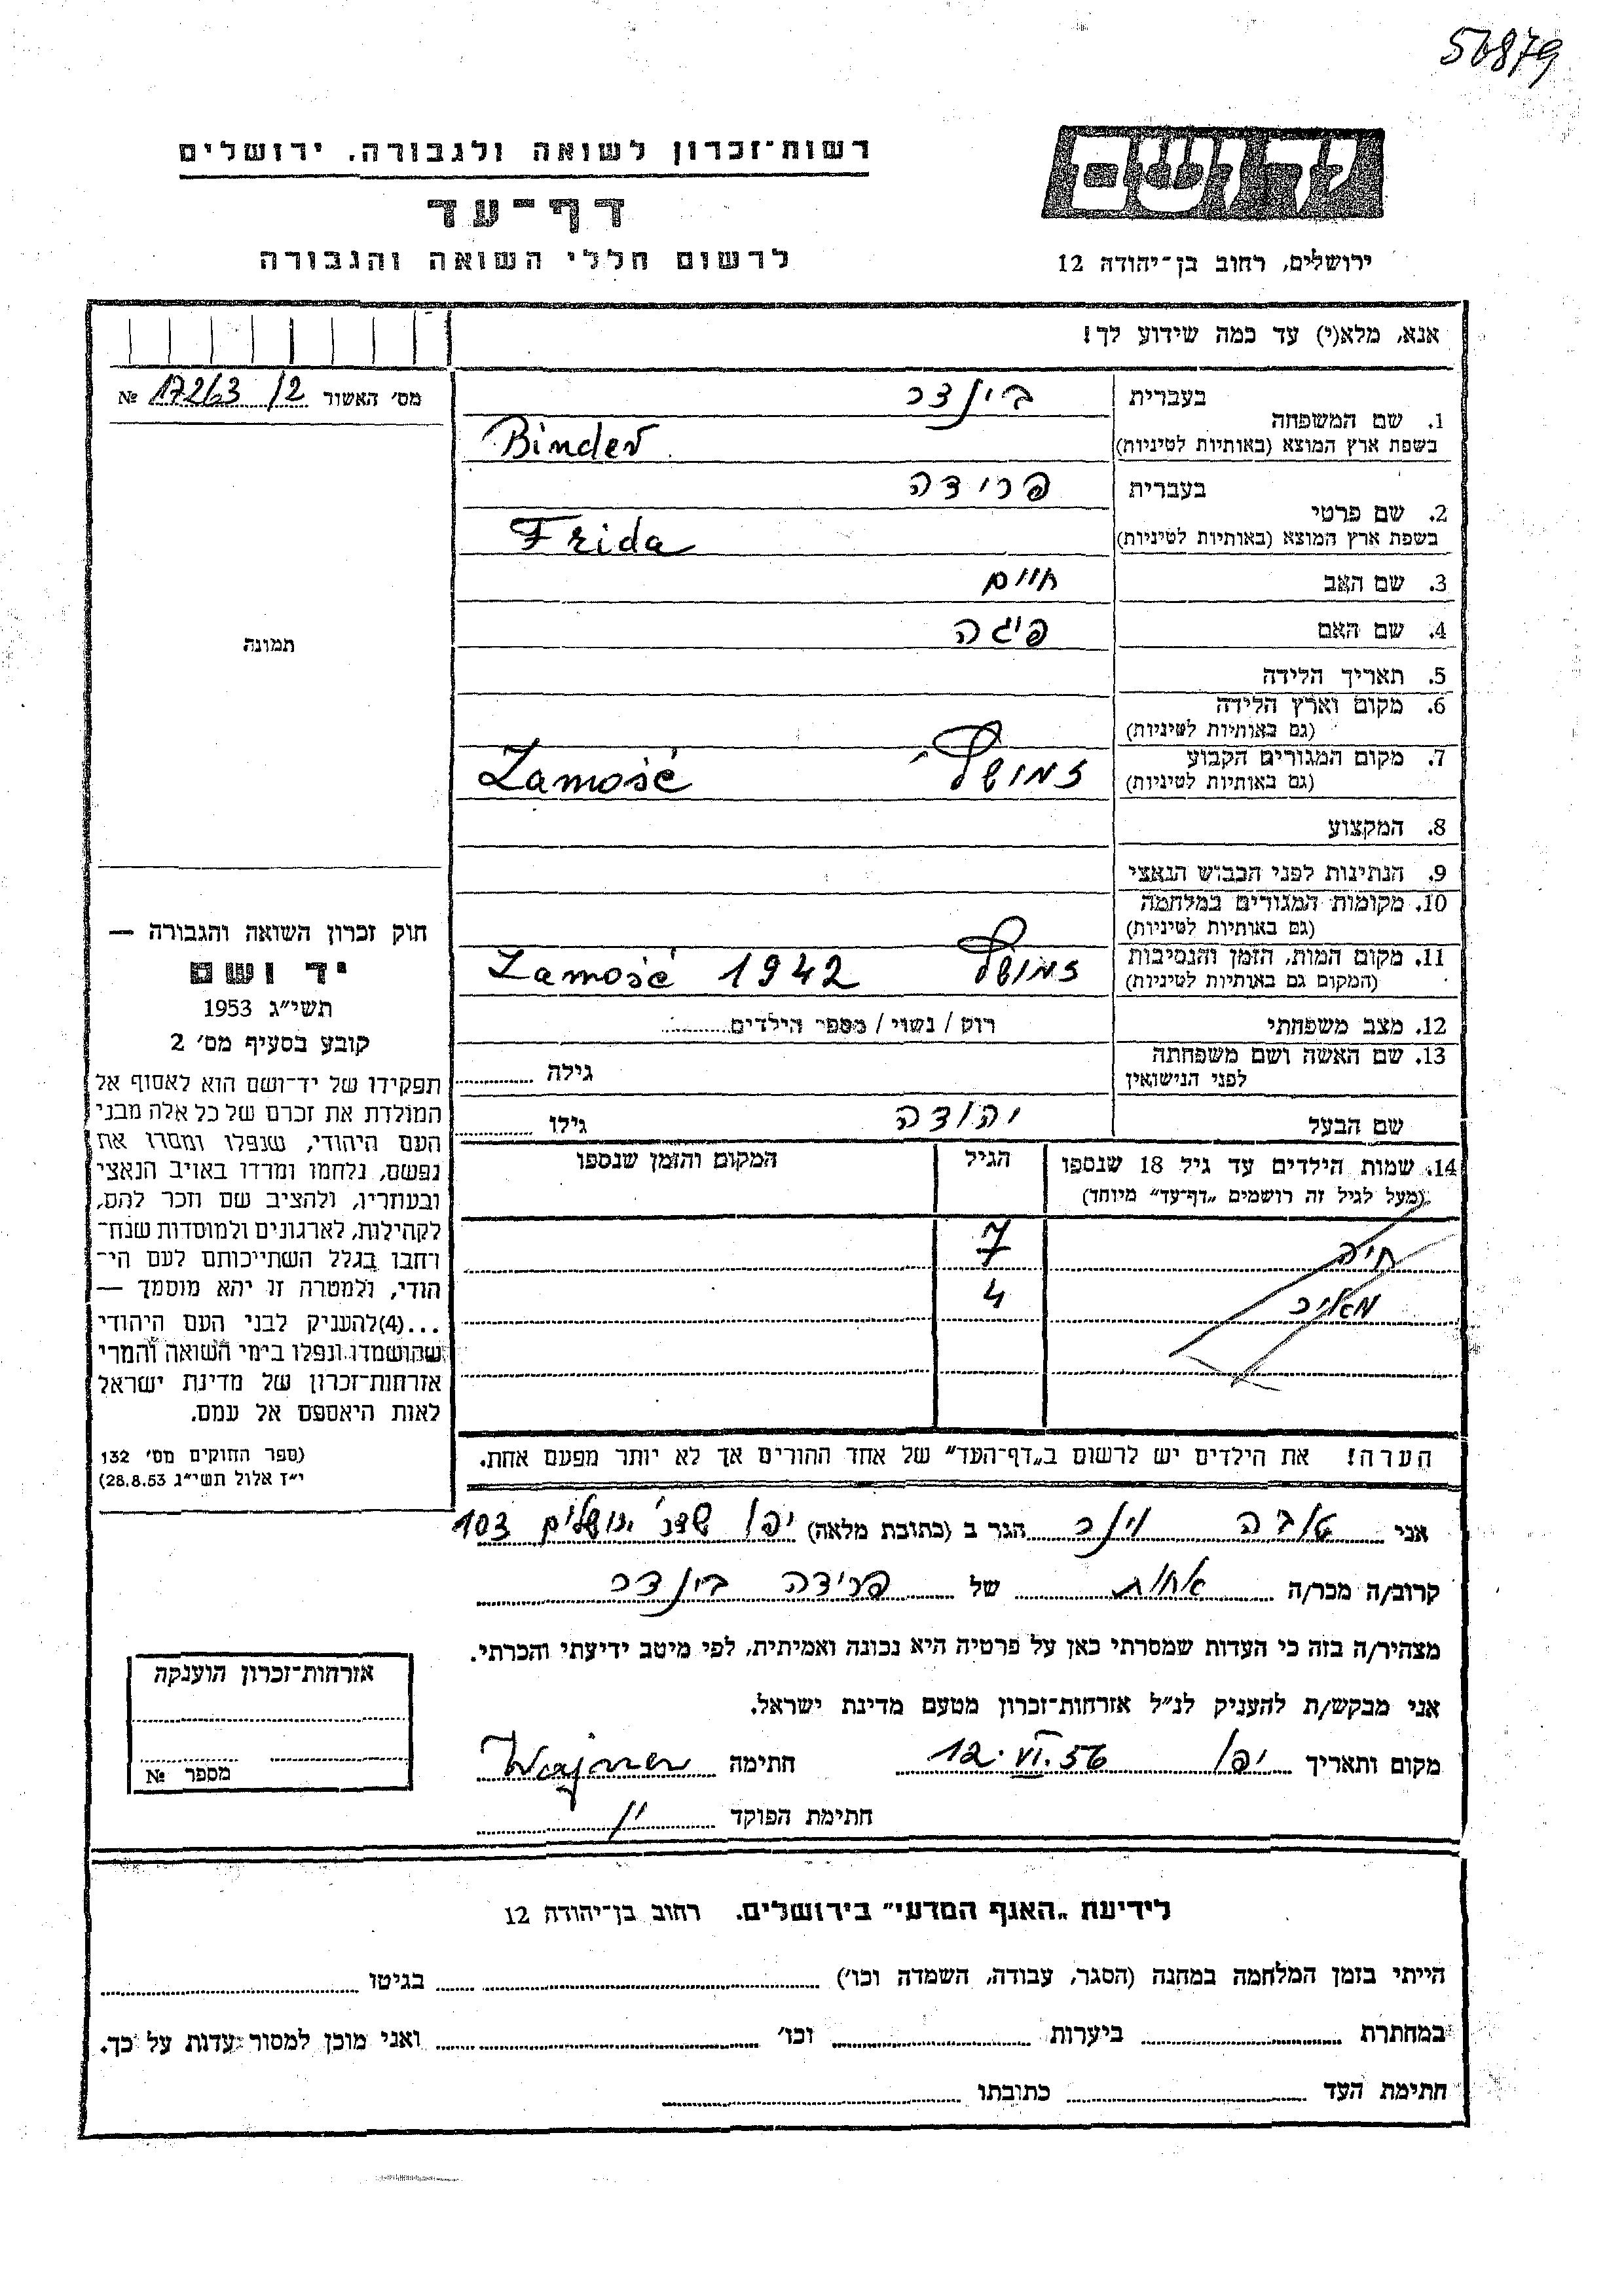 50879
יד ושם
רשות־זכרון לשואה ולגבורה. ירושלים
דף־עד
לרשום חללי השואה והגבורה
ירושלים, רחוב בן־יהודה 12
אנא, מלא(י) עד כמה שידוע לך!
מס׳ האשור 17263/2 №
בעברית בינדר
1. שם המשפחה
בשפת ארץ המוצא (באותיות לטיניות) Binder
בעברית פרידה
2. שם פרטי
בשפת ארץ המוצא (באותיות לטיניות) Frida
3. שם האב חיים
4. שם האם פיגה
5. תאריך הלידה
6. מקום וארץ הלידה
(גם באותיות לטיניות)
7. מקום המגורים הקבוע
(גם באותיות לטיניות) Zamość
8. המקצוע
9. הנתינות לפני הכבוש הנאצי
10. מקומות המגורים במלחמה
(גם באותיות לטיניות)
11. מקום המות, הזמן והנסיבות
(המקום גם באותיות לטיניות) Zamość 1942
12. מצב משפחתי רוק / נשוי / מספר הילדים
13. שם האשה ושם משפחתה
לפני הנישואין גילה
שם הבעל יהודה גילו
14. שמות הילדים עד גיל 18 שנספו הגיל המקום והזמן שנספו
(מעל לגיל זה רושמים „דף־עד״ מיוחד)
חיה 7
מאיר 4
הערה! את הילדים יש לרשום ב„דף־העד״ של אחד ההורים אך לא יותר מפעם אחת.
תמונה
חוק זכרון השואה והגבורה —
יד ושם
תשי״ג 1953
קובע בסעיף מס׳ 2
תפקידו של יד־ושם הוא לאסוף אל
המולדת את זכרם של כל אלה מבני
העם היהודי, שנפלו ומסרו את
נפשם, נלחמו ומרדו באויב הנאצי
ובעוזריו, ולהציב שם וזכר להם,
לקהילות, לארגונים ולמוסדות שנח־
רחבו בגלל השתייכותם לעם הי־
הודי, ולמטרה זו יהא מוסמך —
...(4)להעניק לבני העם היהודי
שהושמדו ונפלו בימי השואה והמרי
אזרחות־זכרון של מדינת ישראל
לאות היאספם אל עמם.
(ספר החוקים מס׳ 132
י״ז אלול תשי״ג 28.8.53)
אני טובה וינר הגר ב (כתובת מלאה) יפו שדר׳ ירושלים 103
קרוב/ה מכר/ה אחות של פרידה בינדר
מצהיר/ה בזה כי העדות שמסרתי כאן על פרטיה היא נכונה ואמיתית, לפי מיטב ידיעתי והכרתי.
אני מבקש/ת להעניק לנ״ל אזרחות־זכרון מטעם מדינת ישראל.
מקום ותאריך יפו 12.VI.56 חתימה Wajner
חתימת הפוקד
אזרחות־זכרון הוענקה
מספר №
לידיעת „האגף המדעי״ בירושלים. רחוב בן־יהודה 12
הייתי בזמן המלחמה במחנה (הסגר, עבודה, השמדה וכו׳) בגיטו
במחתרת ביערות וכו׳ ואני מוכן למסור עדות על כך.
חתימת העד כתובתו